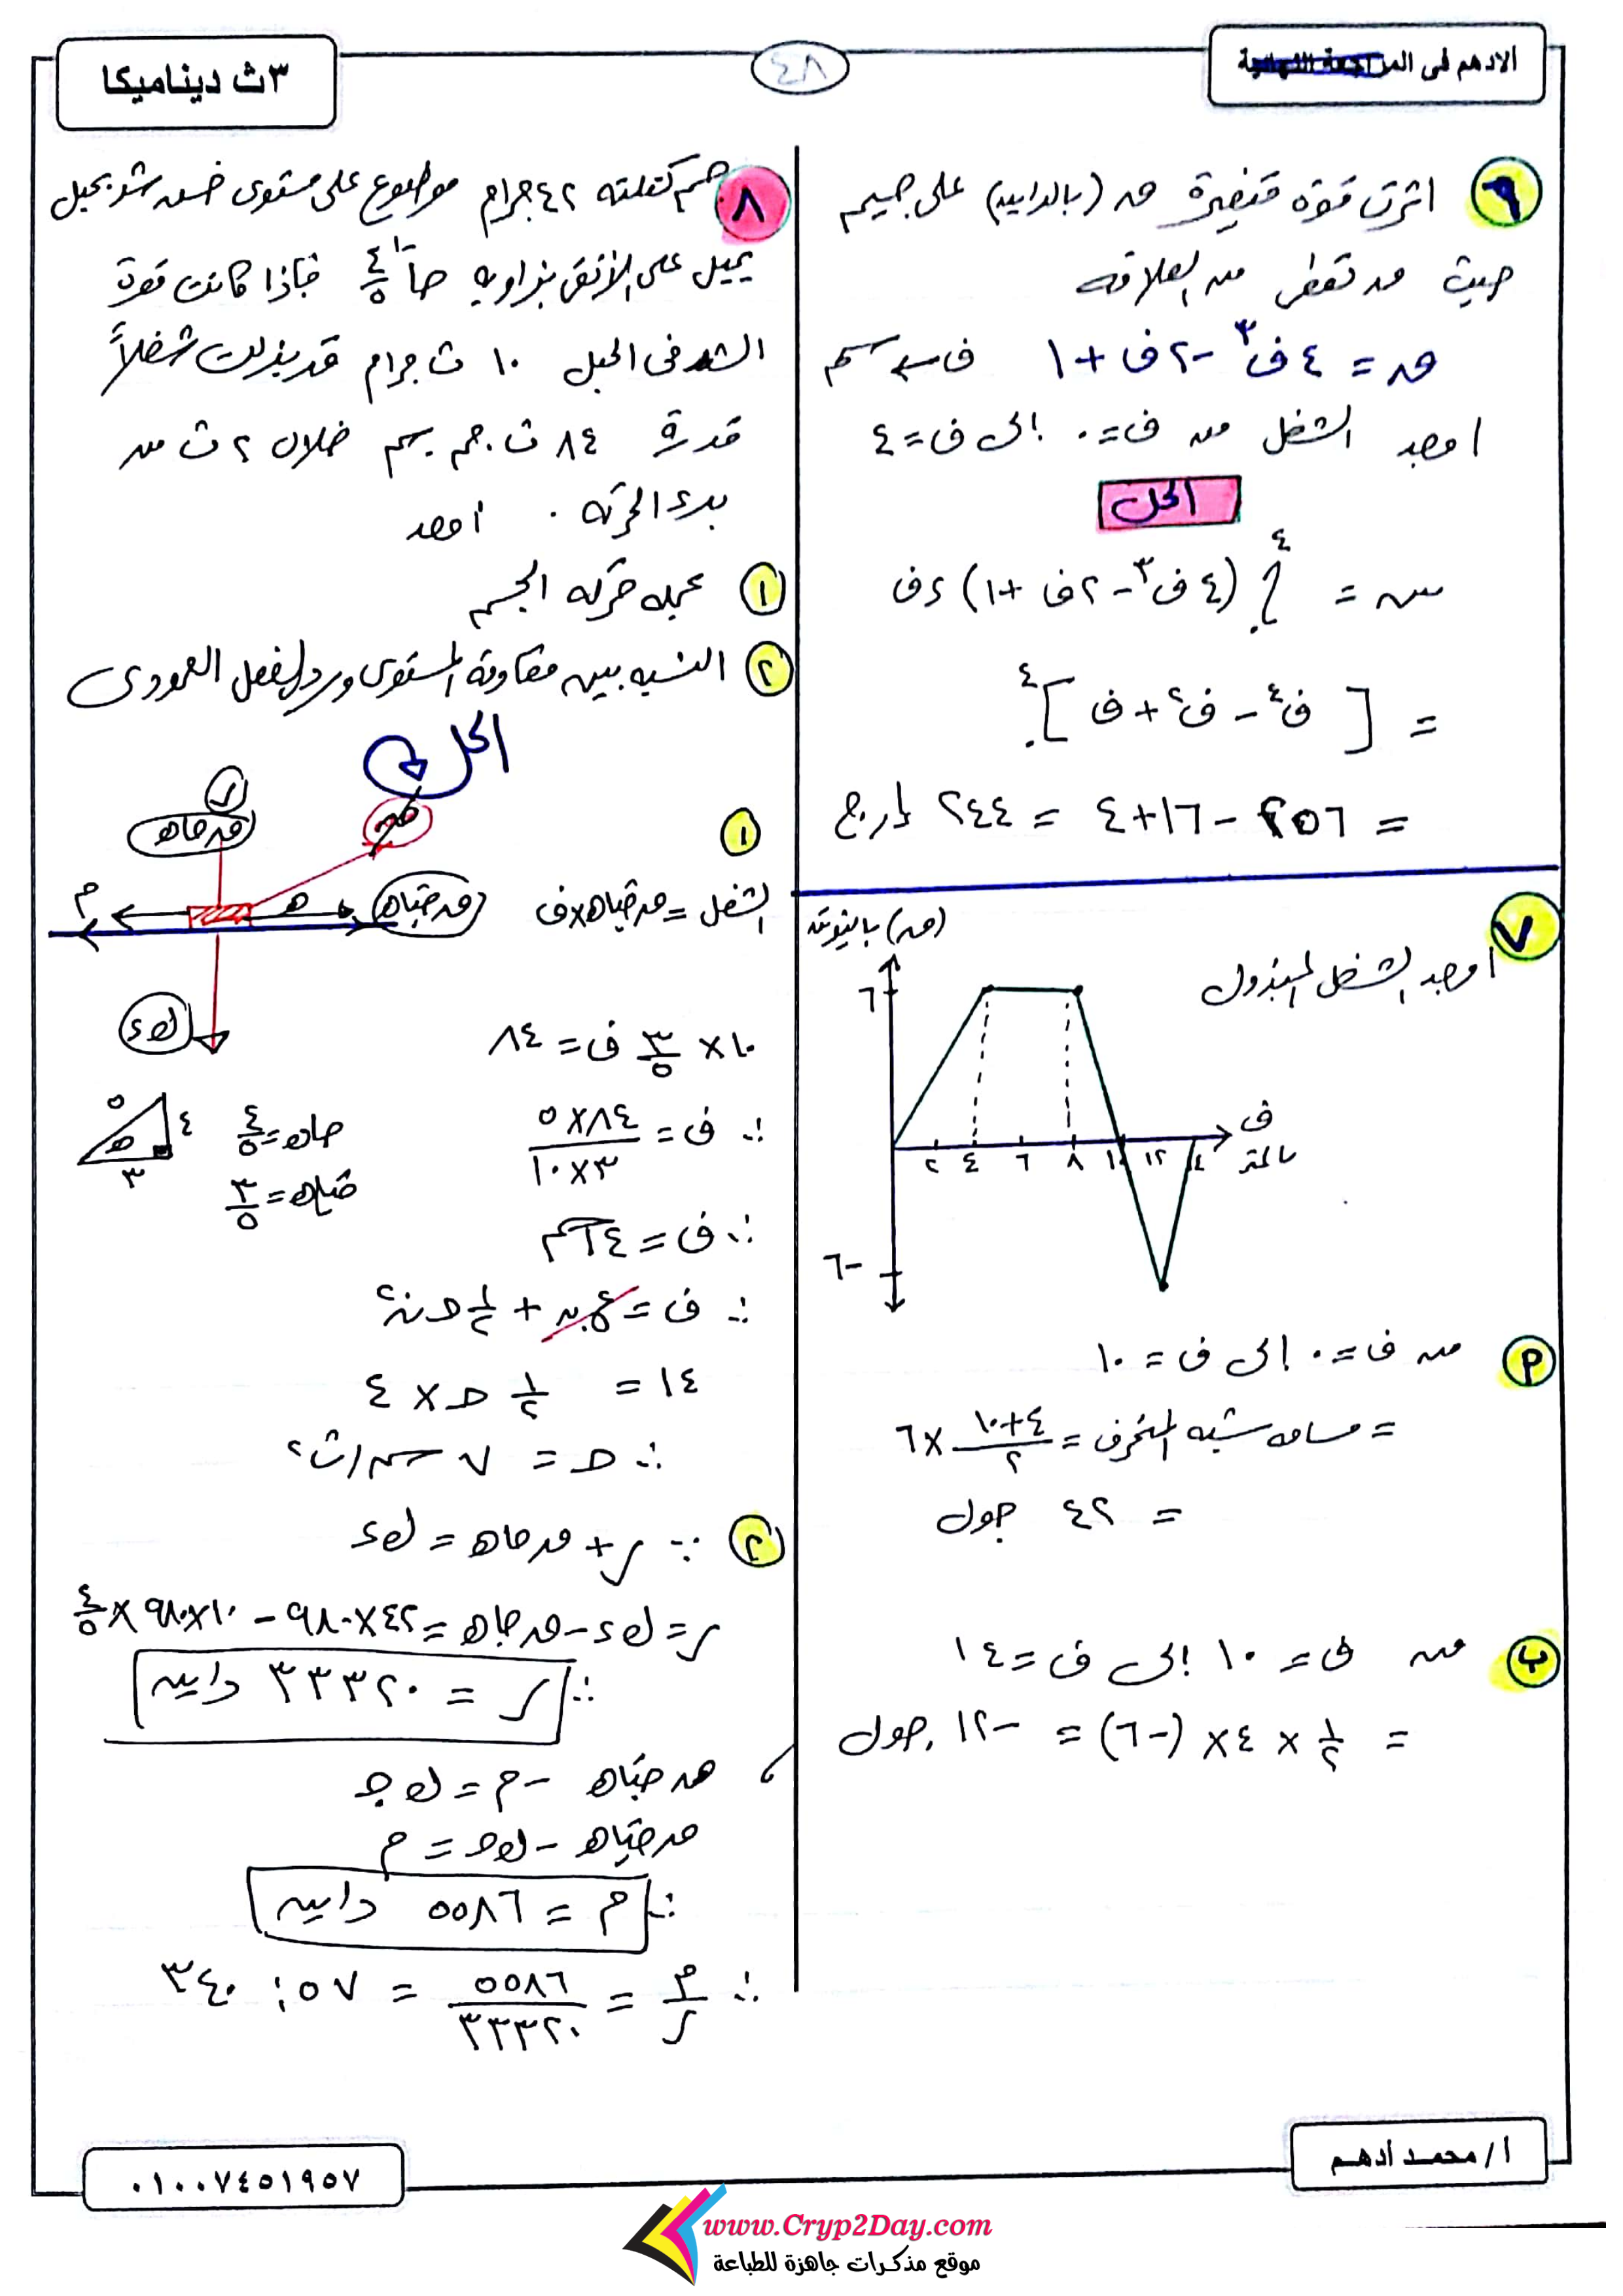 الادهم فى المراجعة النهائية
٤٨
٣ث ديناميكا
٦ اثرت قوة متغيرة ص (بالداين) على جسم
حيث ص تعطى من العلاقة
ص = ٤ف٣ - ٢ف + ١ ف بـ سم
اوجد الشغل من ف = ٠ إلى ف = ٤
الحل
ش = ∫٠^٤ (٤ف٣ - ٢ف + ١) دف
= [ف٤ - ف٢ + ف]٠^٤
= ٢٥٦ - ١٦ + ٤ = ٢٤٤ إرج
٧ اوجد الشغل المبذول
(ص) بالنيوتن
٦
٢ ٤ ٦ ٨ ١٠ ١٢ ١٤
ف
بالمتر
-٦
أ من ف = ٠ إلى ف = ١٠
= مساحه شبه المنحرف = (٤+١٠)/٢ × ٦
= ٤٢ جول
ب من ف = ١٠ إلى ف = ١٤
= ١/٢ × ٤ × (-٦) = -١٢ جول
٨ جسم كتلته ٤٢ جرام موضوع على مستوى خشن شد بحبل
يميل على الأفقى بزاويه حا-١ ٤/٥ فإذا كانت قوة
الشد فى الحبل ١٠ ث جرام قد بذلت شغلاً
قدرة ٨٤ ث.جم.سم خلال ٢ ث من
بدء الحركه . اوجد
١ عجله حركه الجسم
٢ النسبه بين مقاومة المستوى ورد الفعل العمودى
الحل
ر
ص حاه
م
ه
ص حتاه
ك د
١
الشغل = ص حتاه × ف
١٠ × ٣/٥ ف = ٨٤
∴ ف = (٥×٨٤)/(١٠×٣)
٥ ٤ ه ٣
حاه = ٤/٥
حتاه = ٣/٥
∴ ف = ١٤ سم
∴ ف = ع٠ن + ١/٢ حـ ن٢
١٤ = ١/٢ حـ × ٤
∴ حـ = ٧ سم/ث٢
٢ ∵ ر + ص حاه = ك د
ر = ك د - ص حاه = ٤٢×٩٨٠ - ١٠×٩٨٠×٤/٥
∴ ر = ٣٣٣٢٠ داين
، ص حتاه - م = ك حـ
ص حتاه - ك حـ = م
∴ م = ٥٥٨٦ داين
∴ م/ر = ٥٥٨٦/٣٣٣٢٠ = ٥٧ : ٣٤٠
أ/ محمد أدهم
٠١٠٠٧٤٥١٩٥٧
www.Cryp2Day.com
موقع مذكرات جاهزة للطباعة